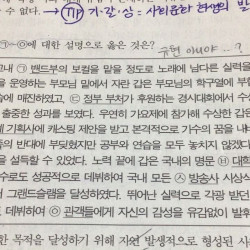 수 없다.
기·갈·상 = 사회문화 현상의 발
㉠~㉧에 대한 설명으로 옳은 것은?
구현 아니야 …?
㉠ 밴드부의 보컬을 맡을 정도로 노래에 남다른 실력을
을 운영하는 부모님 밑에서 자란 갑은 부모님의 학구열에 부합
에 매진하였고, ㉢ 정부 부처가 후원하는 경시대회에서 수
출중한 성과를 보였다. 우연히 가요제에 참가해 수상한 갑은
기획사에 캐스팅 제안을 받고 본격적으로 가수의 꿈을 내
의 반대에 부딪혔지만 공부와 연습을 모두 놓치지 않겠다
을 설득할 수 있었다. 노력 끝에 갑은 국내의 명문 ㉥ 대학
수로도 성공적으로 데뷔하여 국내 모든 방송사 시상식
그랜드슬램을 달성하였다. 뛰어난 실력으로 각광 받던
데뷔하여 관객들에게 자신의 감성을 유감없이 발휘
한 목적을 달성하기 위해 자연 발생적으로 형성되